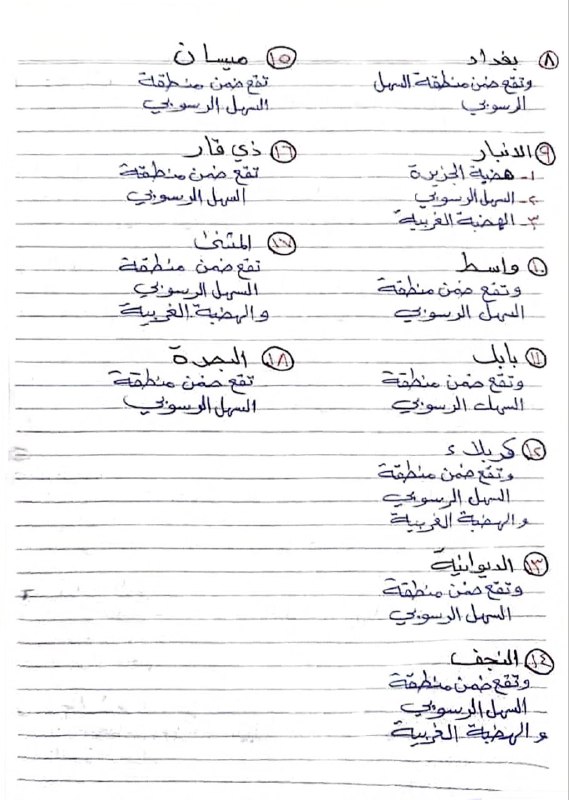 ٨ بغداد
وتقع ضمن منطقة السهل
الرسوبي
٩ الانبار
١- هضبة الجزيرة
٢- السهل الرسوبي
٣- الهضبة الغربية
١٠ واسط
وتقع ضمن منطقة
السهل الرسوبي
١١ بابل
وتقع ضمن منطقة
السهل الرسوبي
١٢ كربلاء
وتقع ضمن منطقة
السهل الرسوبي
والهضبة الغربية
١٣ الديوانية
وتقع ضمن منطقة
السهل الرسوبي
١٤ النجف
وتقع ضمن منطقة
السهل الرسوبي
والهضبة الغربية
١٥ ميسان
تقع ضمن منطقة
السهل الرسوبي
١٦ ذي قار
تقع ضمن منطقة
السهل الرسوبي
١٧ المثنى
تقع ضمن منطقة
السهل الرسوبي
والهضبة الغربية
١٨ البصرة
تقع ضمن منطقة
السهل الرسوبي